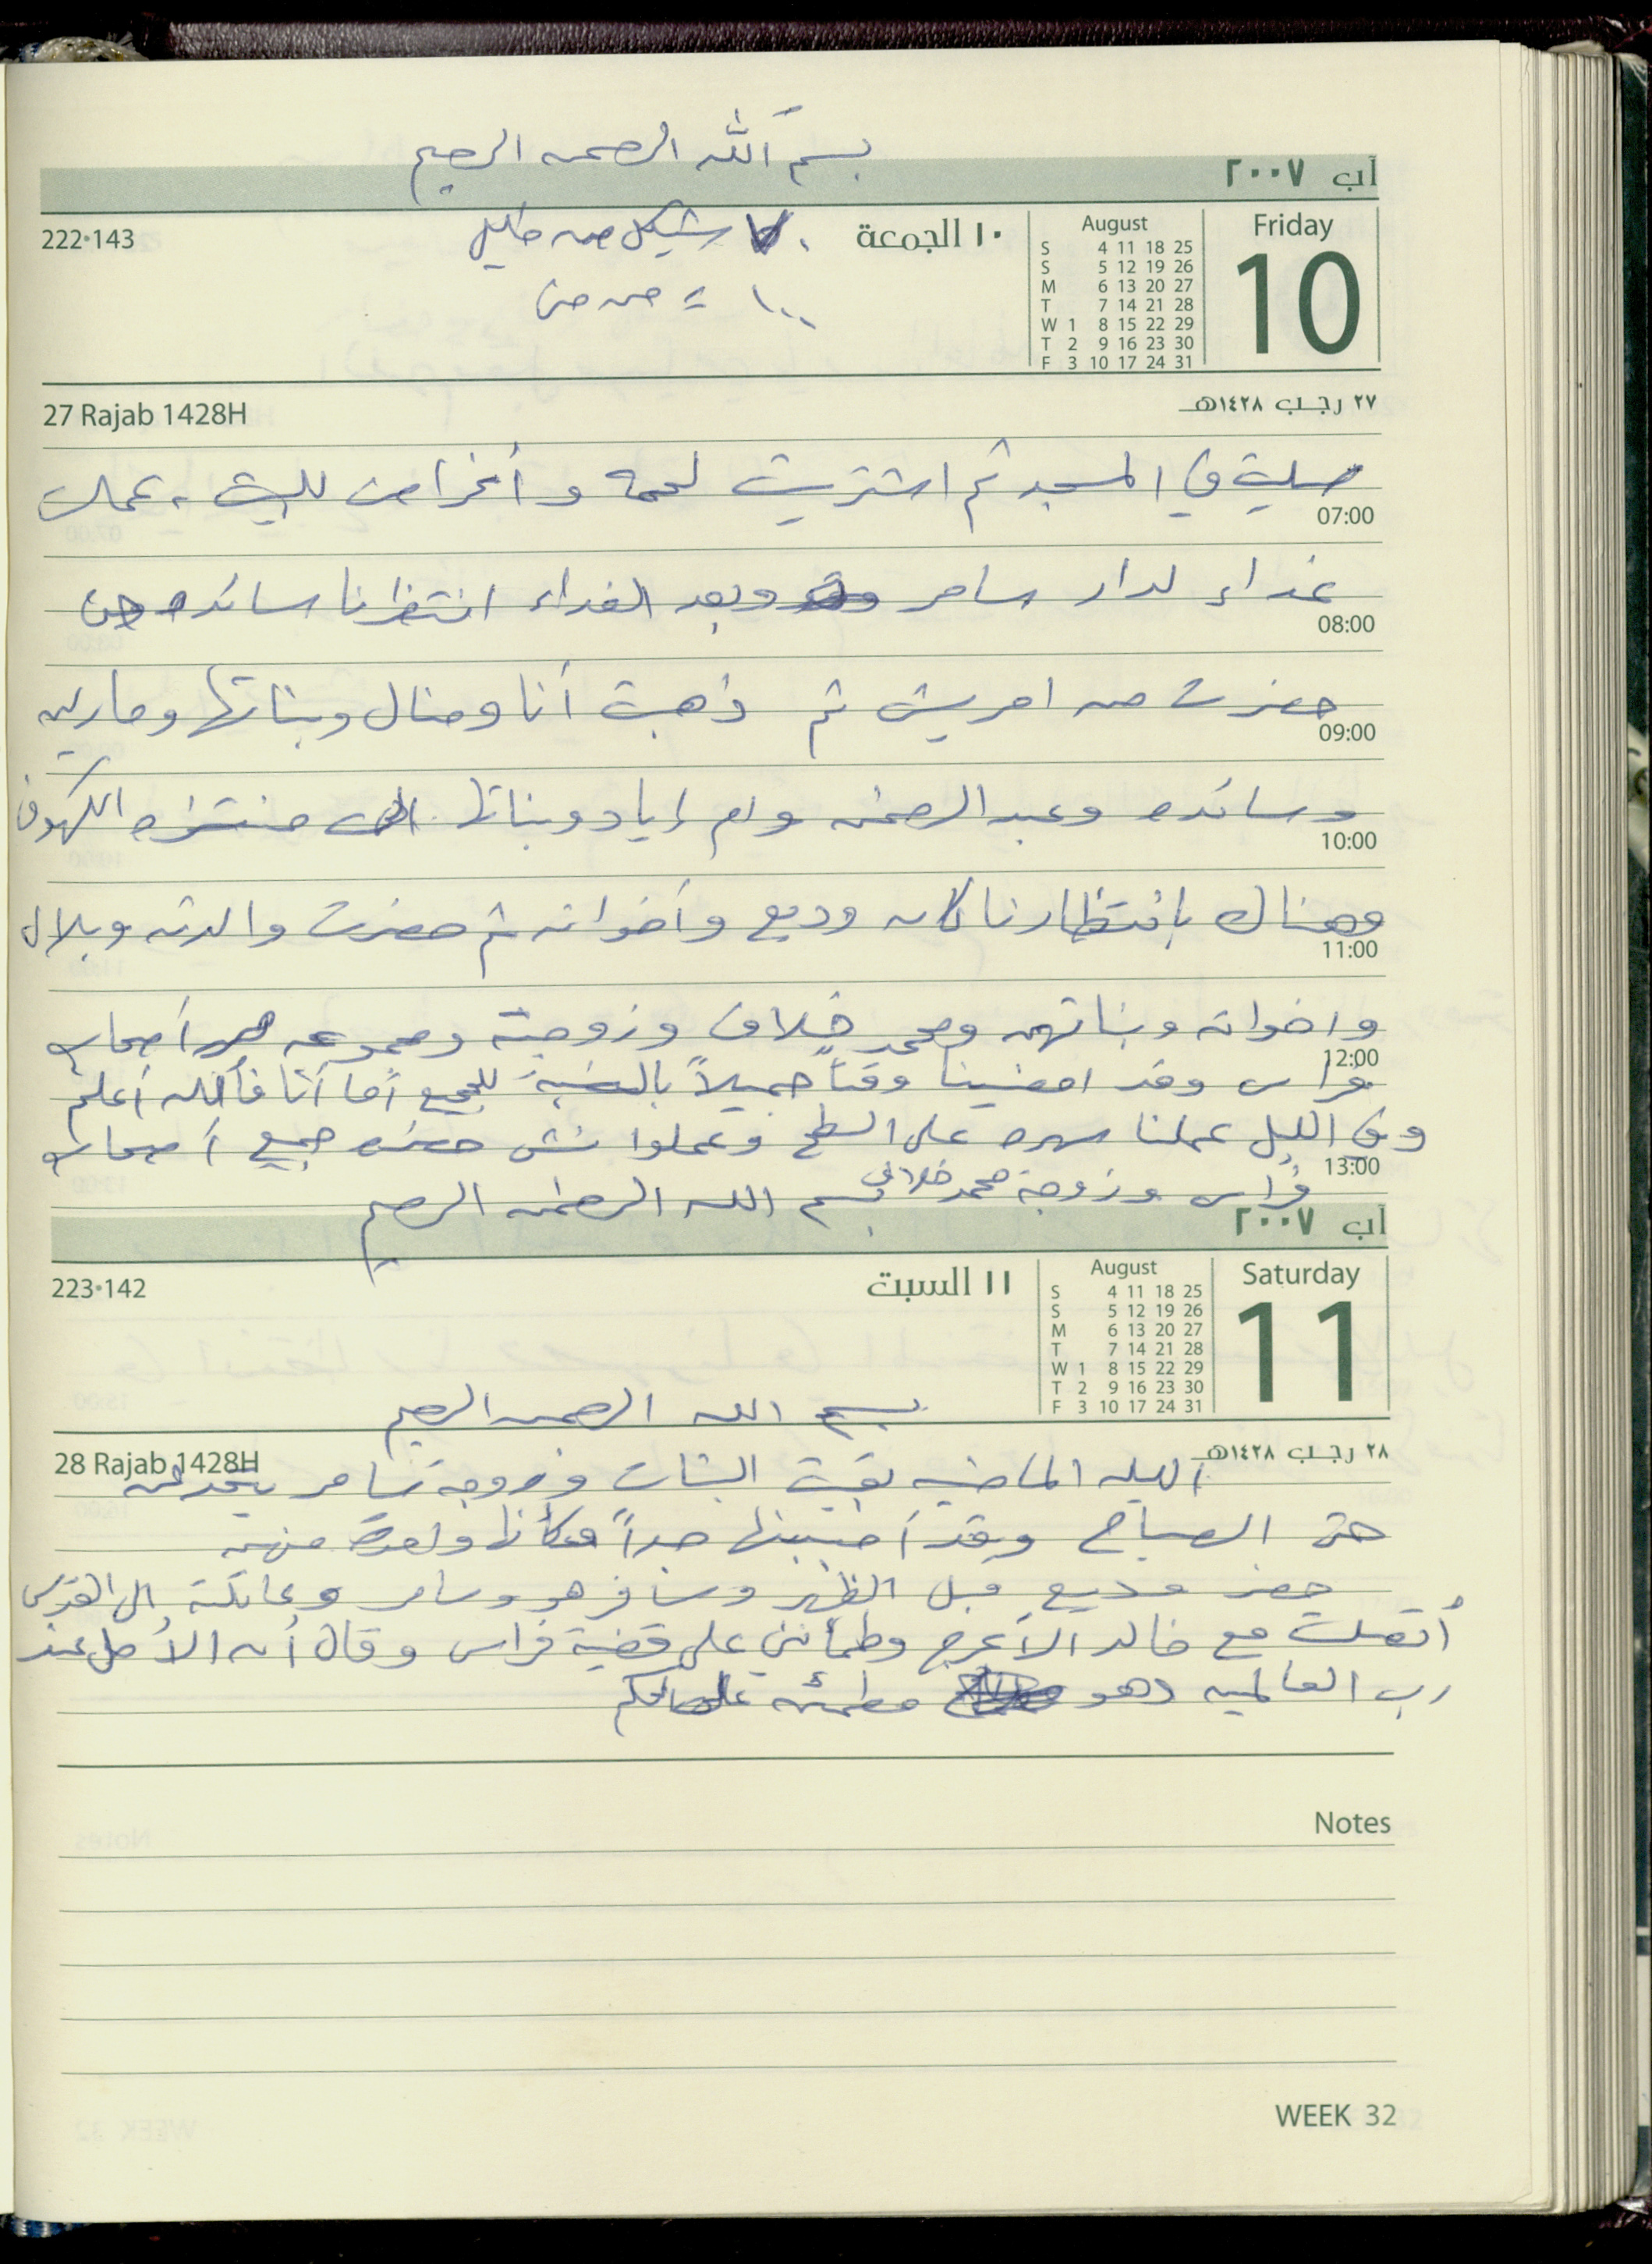 بسم الله الرحمن الرحيم
آب ٢٠٠٧
222•143
شيكل من خليل
١٠ الجمعة
August
Friday
10
S 4 11 18 25
S 5 12 19 26
M 6 13 20 27
T 7 14 21 28
W 1 8 15 22 29
T 2 9 16 23 30
F 3 10 17 24 31
١٠٠ = من
27 Rajab 1428H
٢٧ رجب ١٤٢٨هـ
صليت في المسجد ثم اشتريت لحمة و أغراض للبيت ، عملت
07:00
غداء لدار سامر وبعد الغداء انتظرنا سائده حتى
08:00
حضرت من امريش ثم ذهبت أنا ومنال وبناتها ومارلين
09:00
وسائده وعبد الرحمن وام إياد وبناتها الى منتزه الكهوف
10:00
وهناك بانتظارنا كان وديع وأخواته ثم حضرت والدته وبلال
11:00
واخواته وبناتهم ومحمد خلاف وزوجته ومجموعه من أصحاب
12:00
فراس وقد امضينا وقتاً جميلاً بالنسبة للجميع أما أنا فالله أعلم
وفي الليل عملنا سهره على السطح وعملوا نش حضره جميع أصحاب
13:00
فراس وزوجة محمد خلاف
بسم الله الرحمن الرحيم
آب ٢٠٠٧
223•142
١١ السبت
August
Saturday
11
S 4 11 18 25
S 5 12 19 26
M 6 13 20 27
T 7 14 21 28
W 1 8 15 22 29
T 2 9 16 23 30
F 3 10 17 24 31
بسم الله الرحمن الرحيم
28 Rajab 1428H
٢٨ رجب ١٤٢٨هـ
الليله الماضيه بقيت البنات وزوجة سامر يتحدثن
حتى الصباح وقد أحببنها جداً وكأنها واحدة منهن
حضر وديع قبل الظهر وسافر هو وسامر وعاتكة إلى القدس
أتصلت مع خالد الأعرج وطمأنني على قضية فراس وقال أن الأمل عند
رب العالمين وهو مطمئن
Notes
WEEK 32